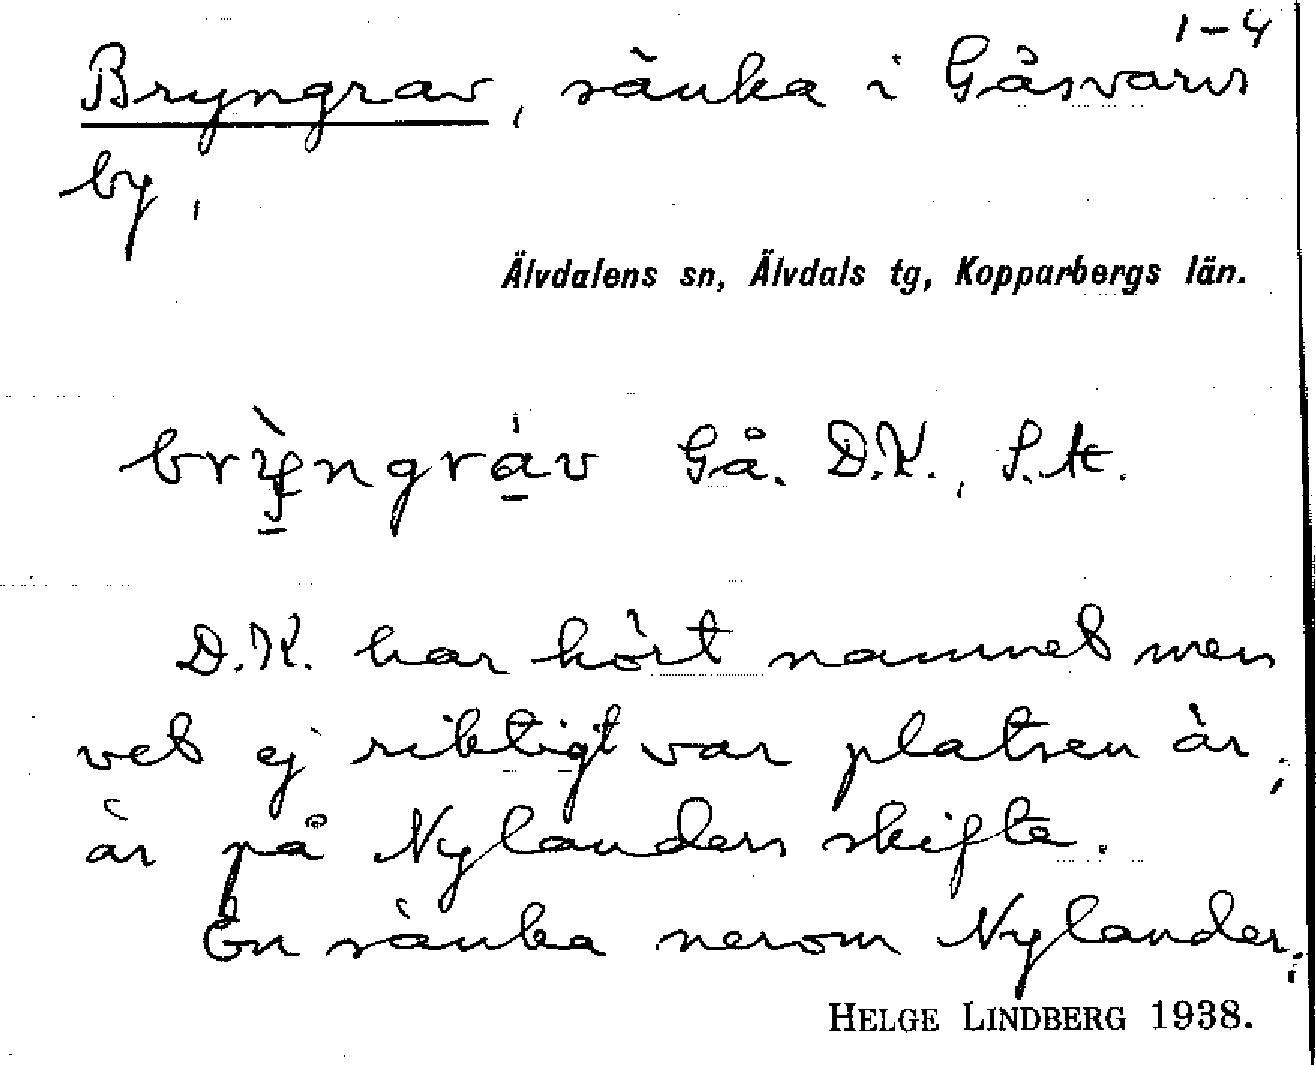 1-4
Bryngrav, sänka i Gåsvarvs
by,
Älvdalens sn, Älvdals tg, Kopparbergs län.
brỳngráv Gå. D.K., S.H.
D.K. har hört namnet men
vet ej riktigt var platsen är;
är på Nylanders skifte.
En sänka nerom Nylander;
HELGE LINDBERG 1938.